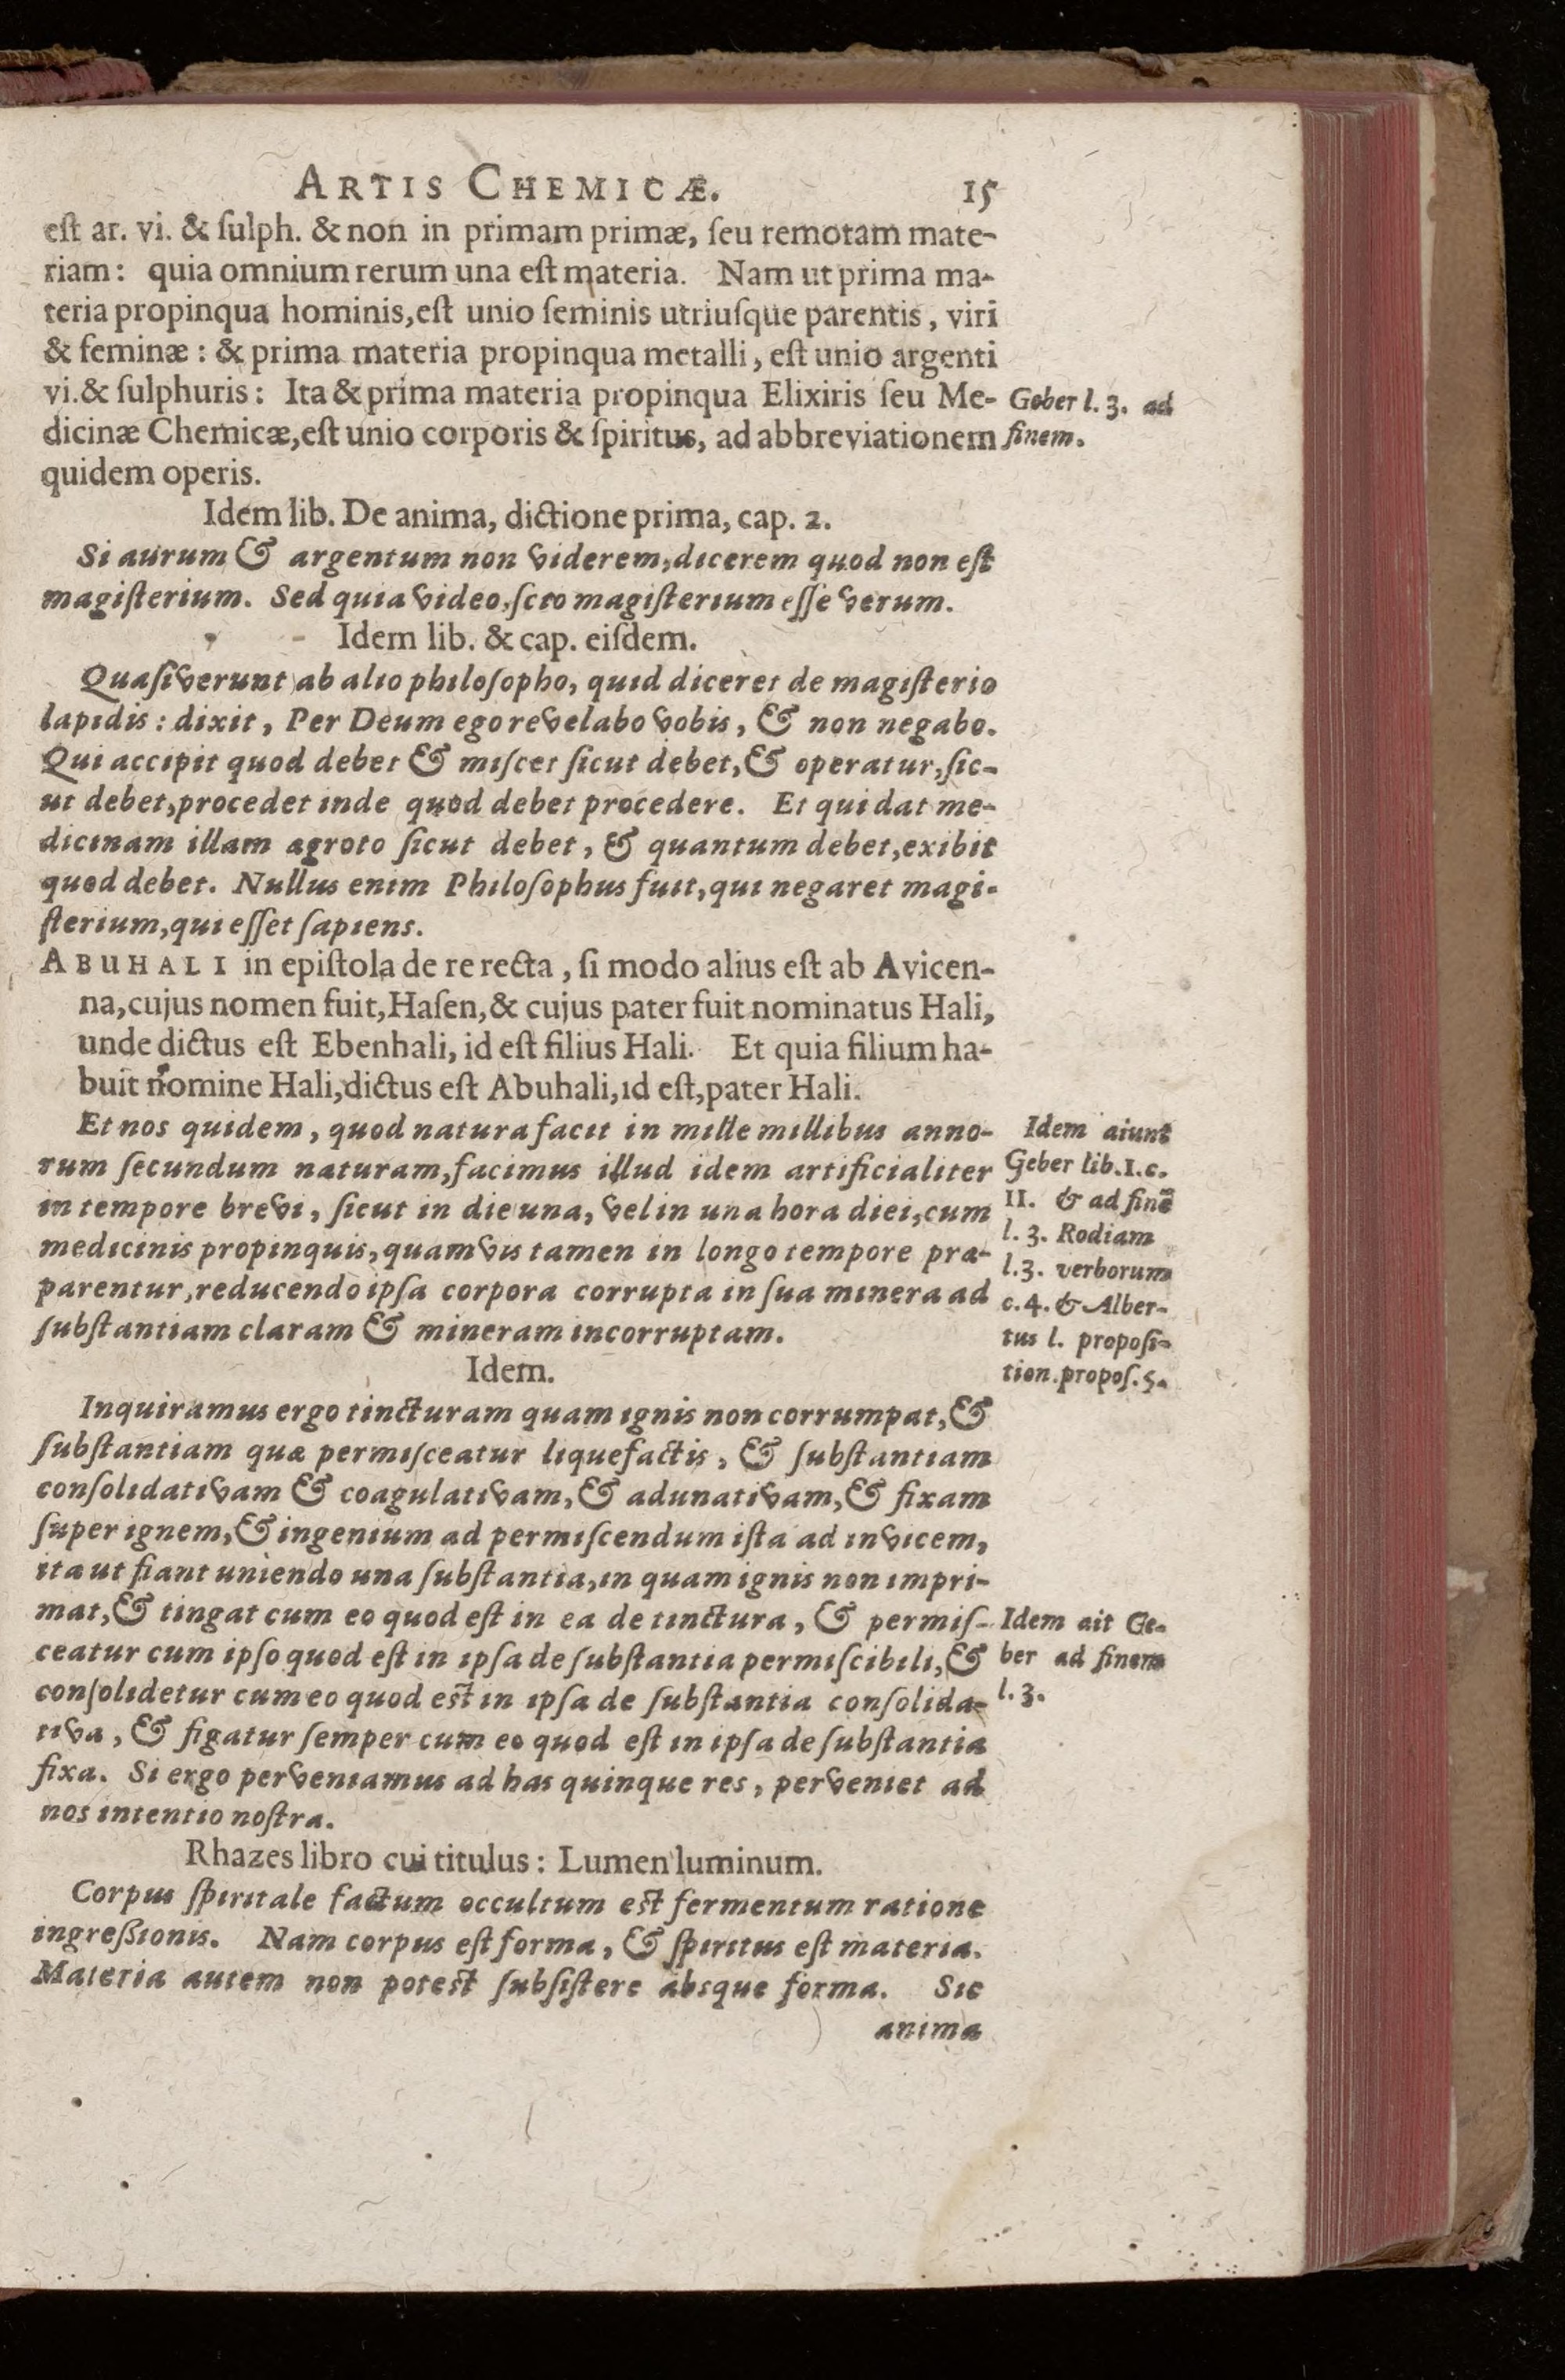 ARTIS CHEMICÆ. 15
eſt ar. vi. & ſulph. & non in primam primæ, ſeu remotam mate-
riam: quia omnium rerum una eſt materia. Nam ut prima ma-
teria propinqua hominis, eſt unio ſeminis utriuſque parentis, viri
& feminæ: & prima materia propinqua metalli, eſt unio argenti
vi. & ſulphuris: Ita & prima materia propinqua Elixiris ſeu Me-
dicinæ Chemicæ, eſt unio corporis & ſpiritus, ad abbreviationem
quidem operis.
Geber l. 3. ad
finem.
Idem lib. De anima, dictione prima, cap. 2.
Si aurum & argentum non viderem, dicerem quod non eſt
magiſterium. Sed quia video, ſcio magiſterium eſſe verum.
Idem lib. & cap. eiſdem.
Quæſiverunt ab alio philoſopho, quid diceret de magiſterio
lapidis: dixit, Per Deum ego revelabo vobis, & non negabo.
Qui accipit quod debet & miſcet ſicut debet, & operatur, ſic-
ut debet, procedet inde quod debet procedere. Et qui dat me-
dicinam illam ægroto ſicut debet, & quantum debet, exibit
quod debet. Nullus enim Philoſophus fuit, qui negaret magi-
ſterium, qui eſſet ſapiens.
ABUHALI in epiſtola de re recta, ſi modo alius eſt ab Avicen-
na, cujus nomen fuit, Haſen, & cujus pater fuit nominatus Hali,
unde dictus eſt Ebenhali, id eſt filius Hali. Et quia filium ha-
buit nomine Hali, dictus eſt Abuhali, id eſt, pater Hali.
Et nos quidem, quod natura facit in mille millibus anno-
rum ſecundum naturam, facimus illud idem artificialiter
in tempore brevi, ſicut in die una, vel in una hora diei, cum
medicinis propinquis, quamvis tamen in longo tempore præ-
parentur, reducendo ipſa corpora corrupta in ſua minera ad
ſubſtantiam claram & mineram incorruptam.
Idem aiunt
Geber lib. I. c.
II. & ad finē
l. 3. Rodiam
l. 3. verborum
c. 4. & Alber-
tus l. propoſi-
tion. propoſ. 5.
Idem.
Inquiramus ergo tincturam quam ignis non corrumpat, &
ſubſtantiam quæ permiſceatur liquefactis, & ſubſtantiam
conſolidativam & coagulativam, & adunativam, & fixam
ſuper ignem, & ingenium ad permiſcendum iſta ad invicem,
ita ut fiant uniendo una ſubſtantia, in quam ignis non impri-
mat, & tingat cum eo quod eſt in ea de tinctura, & permiſ-
ceatur cum ipſo quod eſt in ipſa de ſubſtantia permiſcibili, &
conſolidetur cum eo quod eſt in ipſa de ſubſtantia conſolida-
tiva, & figatur ſemper cum eo quod eſt in ipſa de ſubſtantia
fixa. Si ergo perveniamus ad has quinque res, perveniet ad
nos intentio noſtra.
Idem ait Ge-
ber ad finem
l. 3.
Rhazes libro cui titulus: Lumen luminum.
Corpus ſpiritale factum occultum eſt fermentum ratione
ingreßionis. Nam corpus eſt forma, & ſpiritus eſt materia.
Materia autem non poteſt ſubſiſtere absque forma. Sic
anima